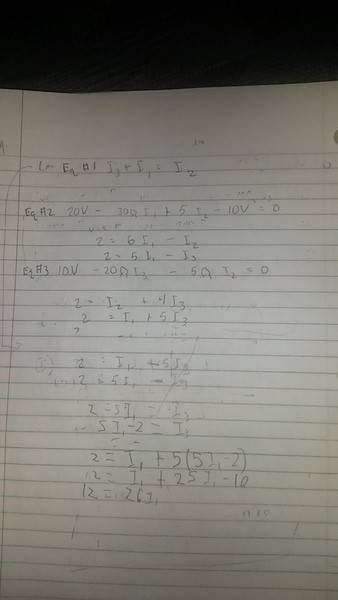 Eq #1 I₃ + I₁ = I₂
Eq #2 20V - 30Ω I₁ + 5 I₂ - 10V = 0
2 = 6 I₁ - I₂
2 = 5 I₁ - I₃
Eq #3 10V - 20Ω I₃ - 5Ω I₂ = 0
2 = I₂ + 4 I₃
2 = I₁ + 5 I₃
2 = I₁ + 5 I₃
2 = 5 I₁ - I₃
2 = 5 I₁ - I₃
5 I₁ - 2 = I₃
2 = I₁ + 5(5 I₁ - 2)
2 = I₁ + 25 I₁ - 10
12 = 26 I₁